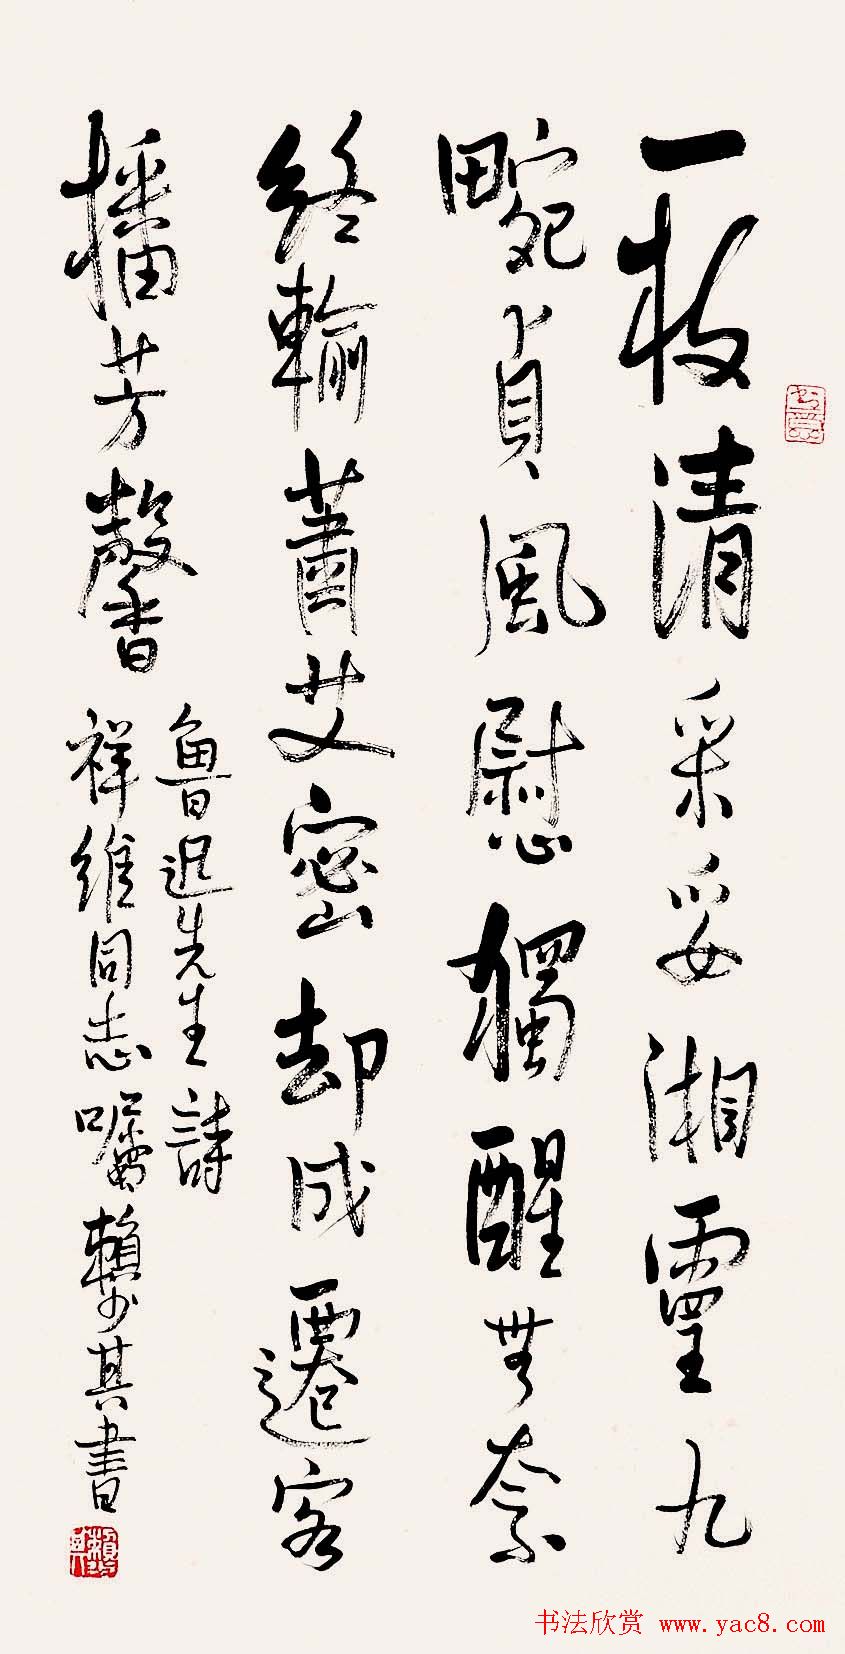 一枝清采妥湘靈九
畹貞風慰獨醒無奈
終輸蕭艾密却成遷客
播芳馨
魯迅先生詩
祥維同志囑賴少其書
书法欣赏 www.yac8.com